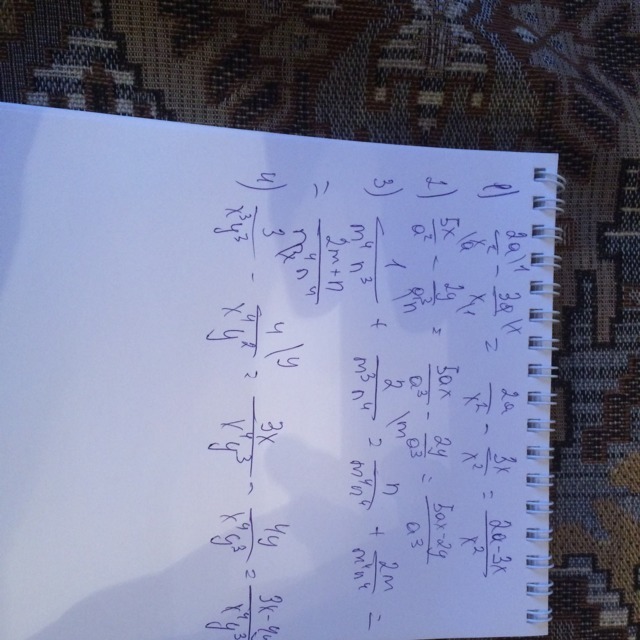 1) 2a/x² \1 − 3a/x \x = 2a/x² − 3x/x² = 2a-3x/x²
2) 5x/a² \a − 2y/a³ \1 = 5ax/a³ − 2y/a³ = 5ax-2y/a³
3) 1/m⁴n³ \n + 2/m³n⁴ \m = n/m⁴n⁴ + 2m/m⁴n⁴ =
= 2m+n/m⁴n⁴
4) 3/x³y³ \x − 4/x⁴y² \y = 3x/x⁴y³ − 4y/x⁴y³ = 3x-4y/x⁴y³